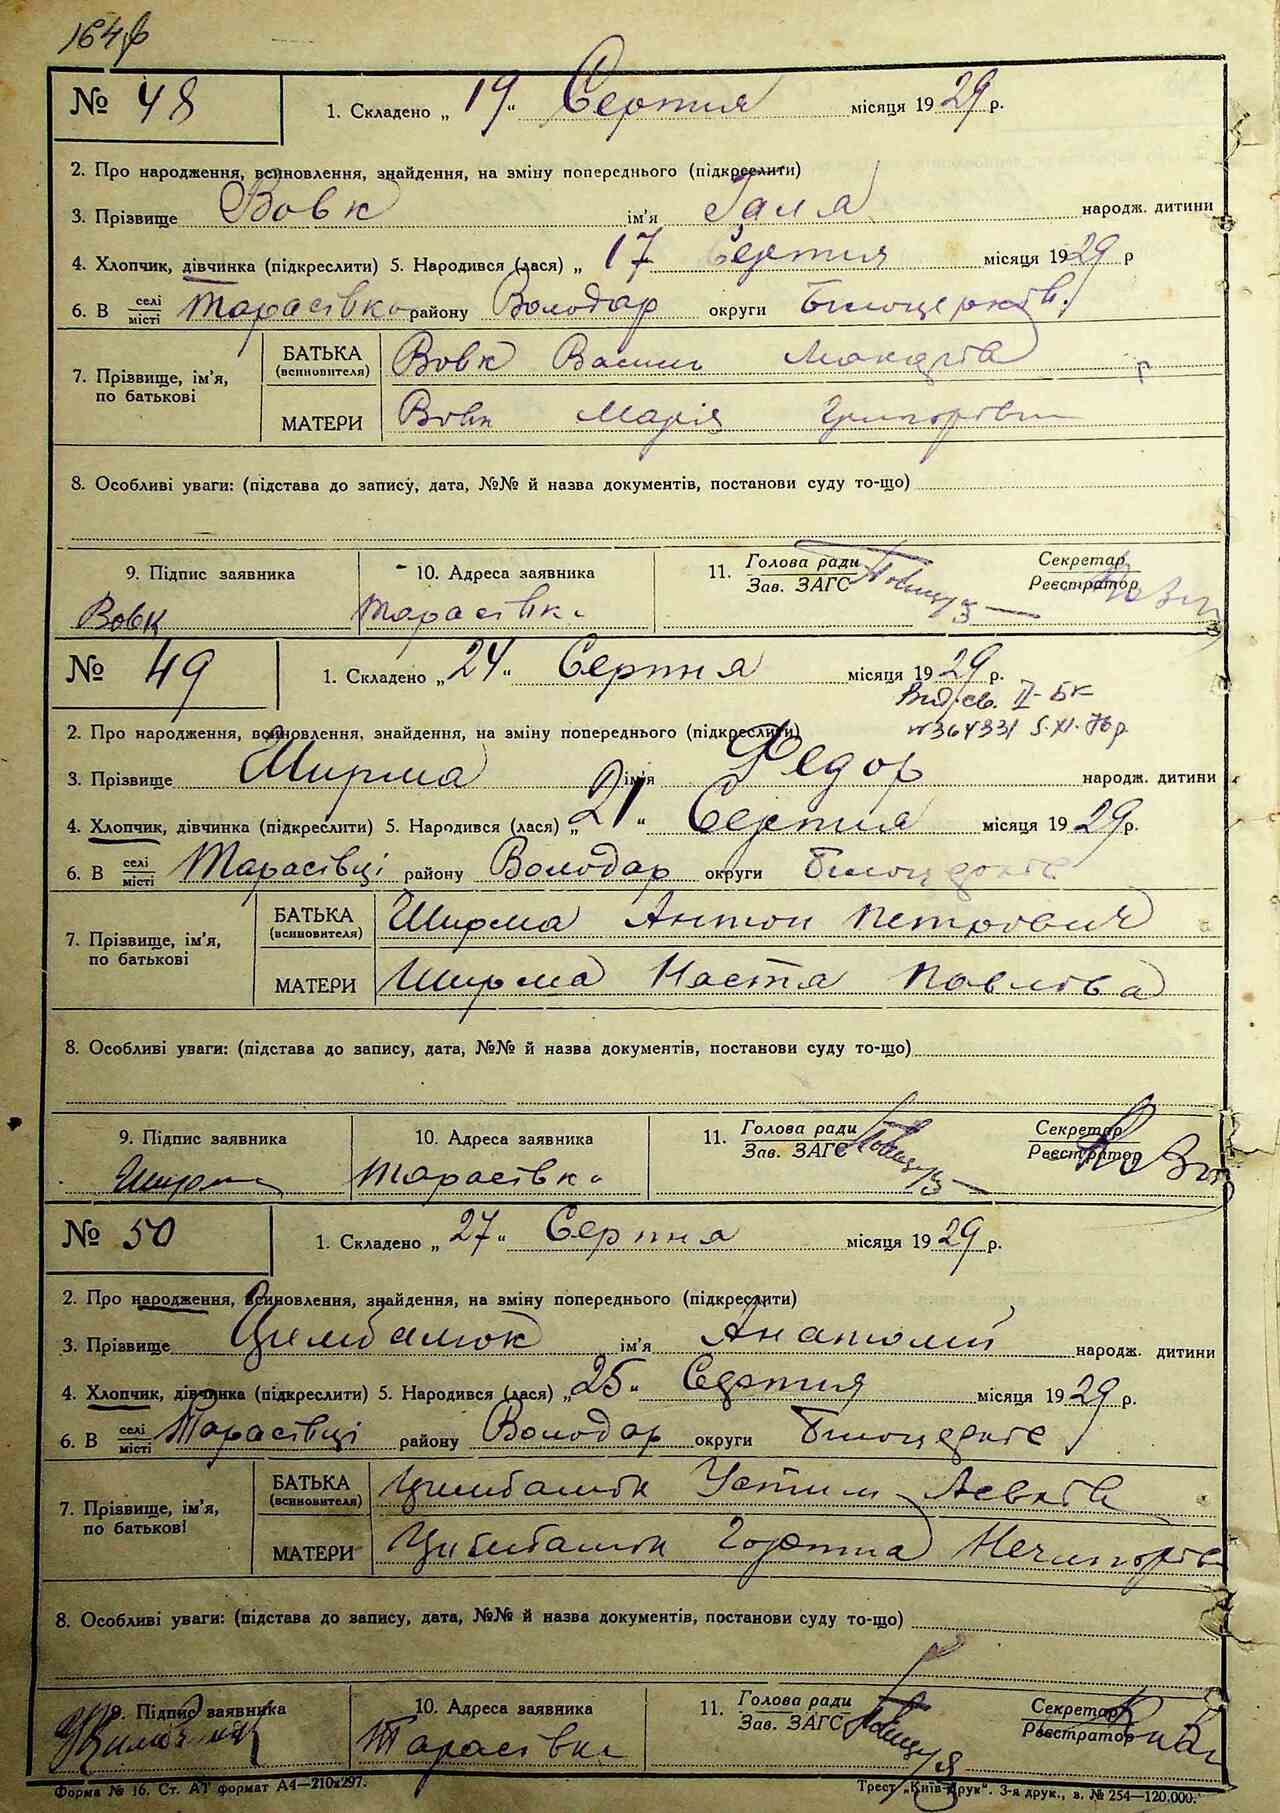 № 48 1. Складено „ 19 “ Серпня місяця 1929 р.
2. Про народження, всиновлення, знайдення, на зміну попереднього (підкреслити)
3. Прізвище Вовк ім'я Галя народж. дитини
4. Хлопчик, дівчинка (підкреслити) 5. Народився (лася) „ 17 Серпня місяця 1929 р
6. В селі місті Тарасівка району Володар округи Білоцерків.
7. Прізвище, ім'я, по батькові
БАТЬКА (всиновителя) Вовк Василь Макарів
МАТЕРИ Вовк Марія Григорівн
8. Особливі уваги: (підстава до запису, дата, №№ й назва документів, постанови суду то-що)
9. Підпис заявника 10. Адреса заявника 11. Голова ради Зав. ЗАГС Секретар Реєстратор
Вовк Тарасівка
№ 49 1. Складено „ 24 “ Серпня місяця 1929 р.
Вид. св. II-БК
№ 364331 5.XI.
2. Про народження, всиновлення, знайдення, на зміну попереднього (підкреслити)
3. Прізвище Ширма ім'я Федор народж. дитини
4. Хлопчик, дівчинка (підкреслити) 5. Народився (лася) „ 21 “ Серпня місяця 1929 р.
6. В селі місті Тарасівці району Володар округи Білоцерків
7. Прізвище, ім'я, по батькові
БАТЬКА (всиновителя) Ширма Антон Петрович
МАТЕРИ Ширма Настя Павлова
8. Особливі уваги: (підстава до запису, дата, №№ й назва документів, постанови суду то-що)
9. Підпис заявника 10. Адреса заявника 11. Голова ради Зав. ЗАГС Секретар Реєстратор
Ширма Тарасівка
№ 50 1. Складено „ 27 “ Серпня місяця 1929 р.
2. Про народження, всиновлення, знайдення, на зміну попереднього (підкреслити)
3. Прізвище Цимбалюк ім'я Анатолій народж. дитини
4. Хлопчик, дівчинка (підкреслити) 5. Народився (лася) „ 25 “ Серпня місяця 1929 р.
6. В селі місті Тарасівці району Володар округи Білоцерків
7. Прізвище, ім'я, по батькові
БАТЬКА (всиновителя) Цимбалюк Устим
МАТЕРИ Цимбалюк Горпина Нечипорів
8. Особливі уваги: (підстава до запису, дата, №№ й назва документів, постанови суду то-що)
9. Підпис заявника 10. Адреса заявника 11. Голова ради Зав. ЗАГС Секретар Реєстратор
Тарасівка
Форма № 16. Ст. АТ формат А4—210х297. Трест „Київ-Друк“. 3-я друк., з. № 254—120.000.